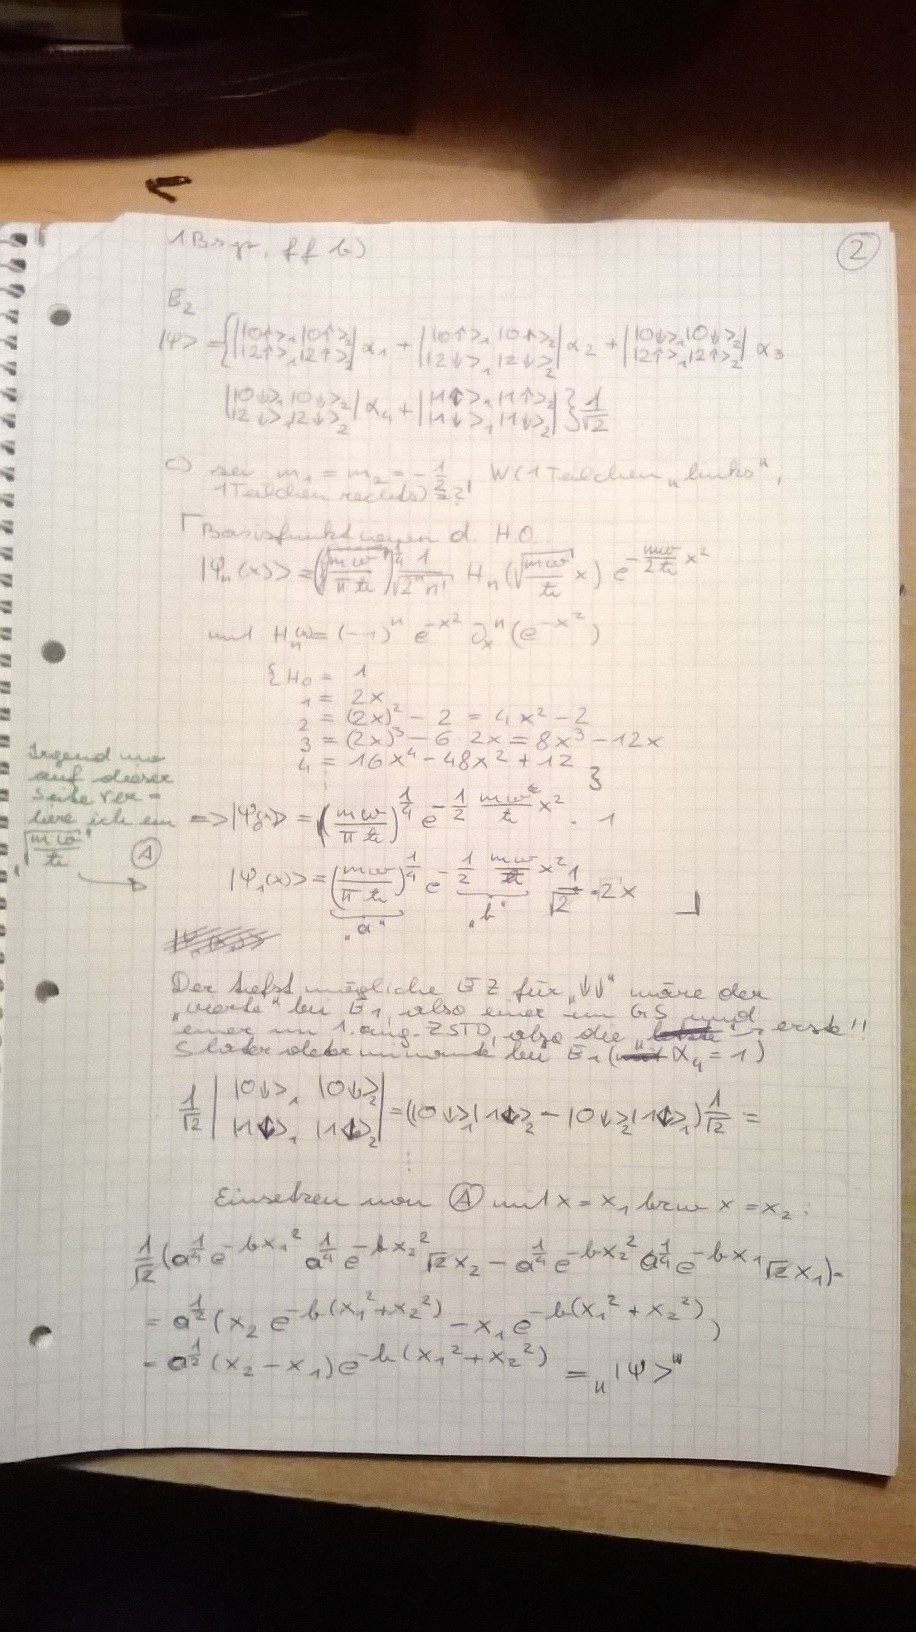 1 Bsp, ff b)
②
E₂
|Ψ> = { | |0↑>₁ |0↑>₂ ; |2↑>₁ |2↑>₂ | α₁ + | |0↑>₁ |0↑>₂ ; |2↓>₁ |2↓>₂ | α₂ + | |0↓>₁ |0↓>₂ ; |2↑>₁ |2↑>₂ | α₃
| |0↓>₁ |0↓>₂ ; |2↓>₁ |2↓>₂ | α₄ + | |1↑>₁ |1↑>₂ ; |1↓>₁ |1↓>₂ | } 1/√2
c) sei m₁ = m₂ = -1/2 W(1 Teilchen „links",
1 Teilchen rechts) = ?!
Γ Basisfunktionen d. H.O.
|Ψₙ(x)> = (√(mω/πħ))^(1/4) 1/√(2ⁿn!) Hₙ(√(mω/ħ) x) e^(-mω/2ħ x²)
mit Hₙ(x) = (-1)ⁿ e^(-x²) ∂ₓⁿ (e^(-x²))
{H₀ = 1
₁ = 2x
₂ = (2x)² - 2 = 4x² - 2
₃ = (2x)³ - 6 2x = 8x³ - 12x
₄ = 16x⁴ - 48x² + 12 }
Irgendwo
auf dieser
Seite ver=
liere ich ein
√(mω/ħ)
Ⓐ
=> |Ψ₀(x)> = (mω/πħ)^(1/4) e^(-1/2 mω/ħ x²) · 1
|Ψ₁(x)> = (mω/πħ)^(1/4) e^(-1/2 mω/ħ x²) 1/√2 · 2x
„a" „b"
Der tiefst mögliche EZ für „↓↓" wäre der
„vierte" bei E₁, also einer im GS und
einer im 1. ang. ZSTD, also die erste!!
Slaterdeterminante bei E₁ (α₄ = 1)
1/√2 | |0↓>₁ |0↓>₂ ; |1↓>₁ |1↓>₂ | = (|0↓>₁|1↓>₂ - |0↓>₂|1↓>₁) 1/√2 =
Einsetzen von Ⓐ mit x = x₁ bzw x = x₂:
1/√2 (a^(1/4) e^(-bx₁²) a^(1/4) e^(-bx₂²) √2 x₂ - a^(1/4) e^(-bx₂²) a^(1/4) e^(-bx₁) √2 x₁) =
= a^(1/2) (x₂ e^(-b(x₁²+x₂²)) - x₁ e^(-b(x₁²+x₂²)))
= a^(1/2) (x₂ - x₁) e^(-b(x₁²+x₂²)) = „|Ψ>"